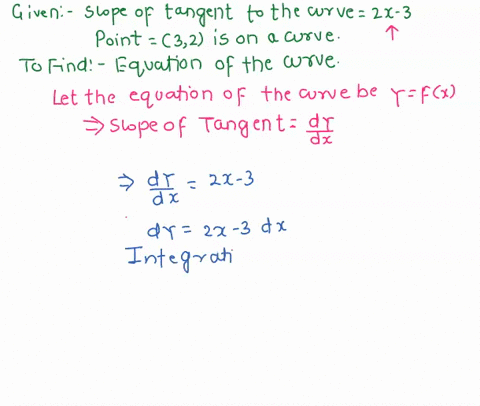 Given:- Slope of tangent to the curve = 2x-3
Point = (3,2) is on a curve. ↑
To Find:- Equation of the curve.
Let the equation of the curve be Y=F(x)
⇒ Slope of Tangent = dY/dx
⇒ dY/dx = 2x-3
dY = 2x-3 dx
Integrati